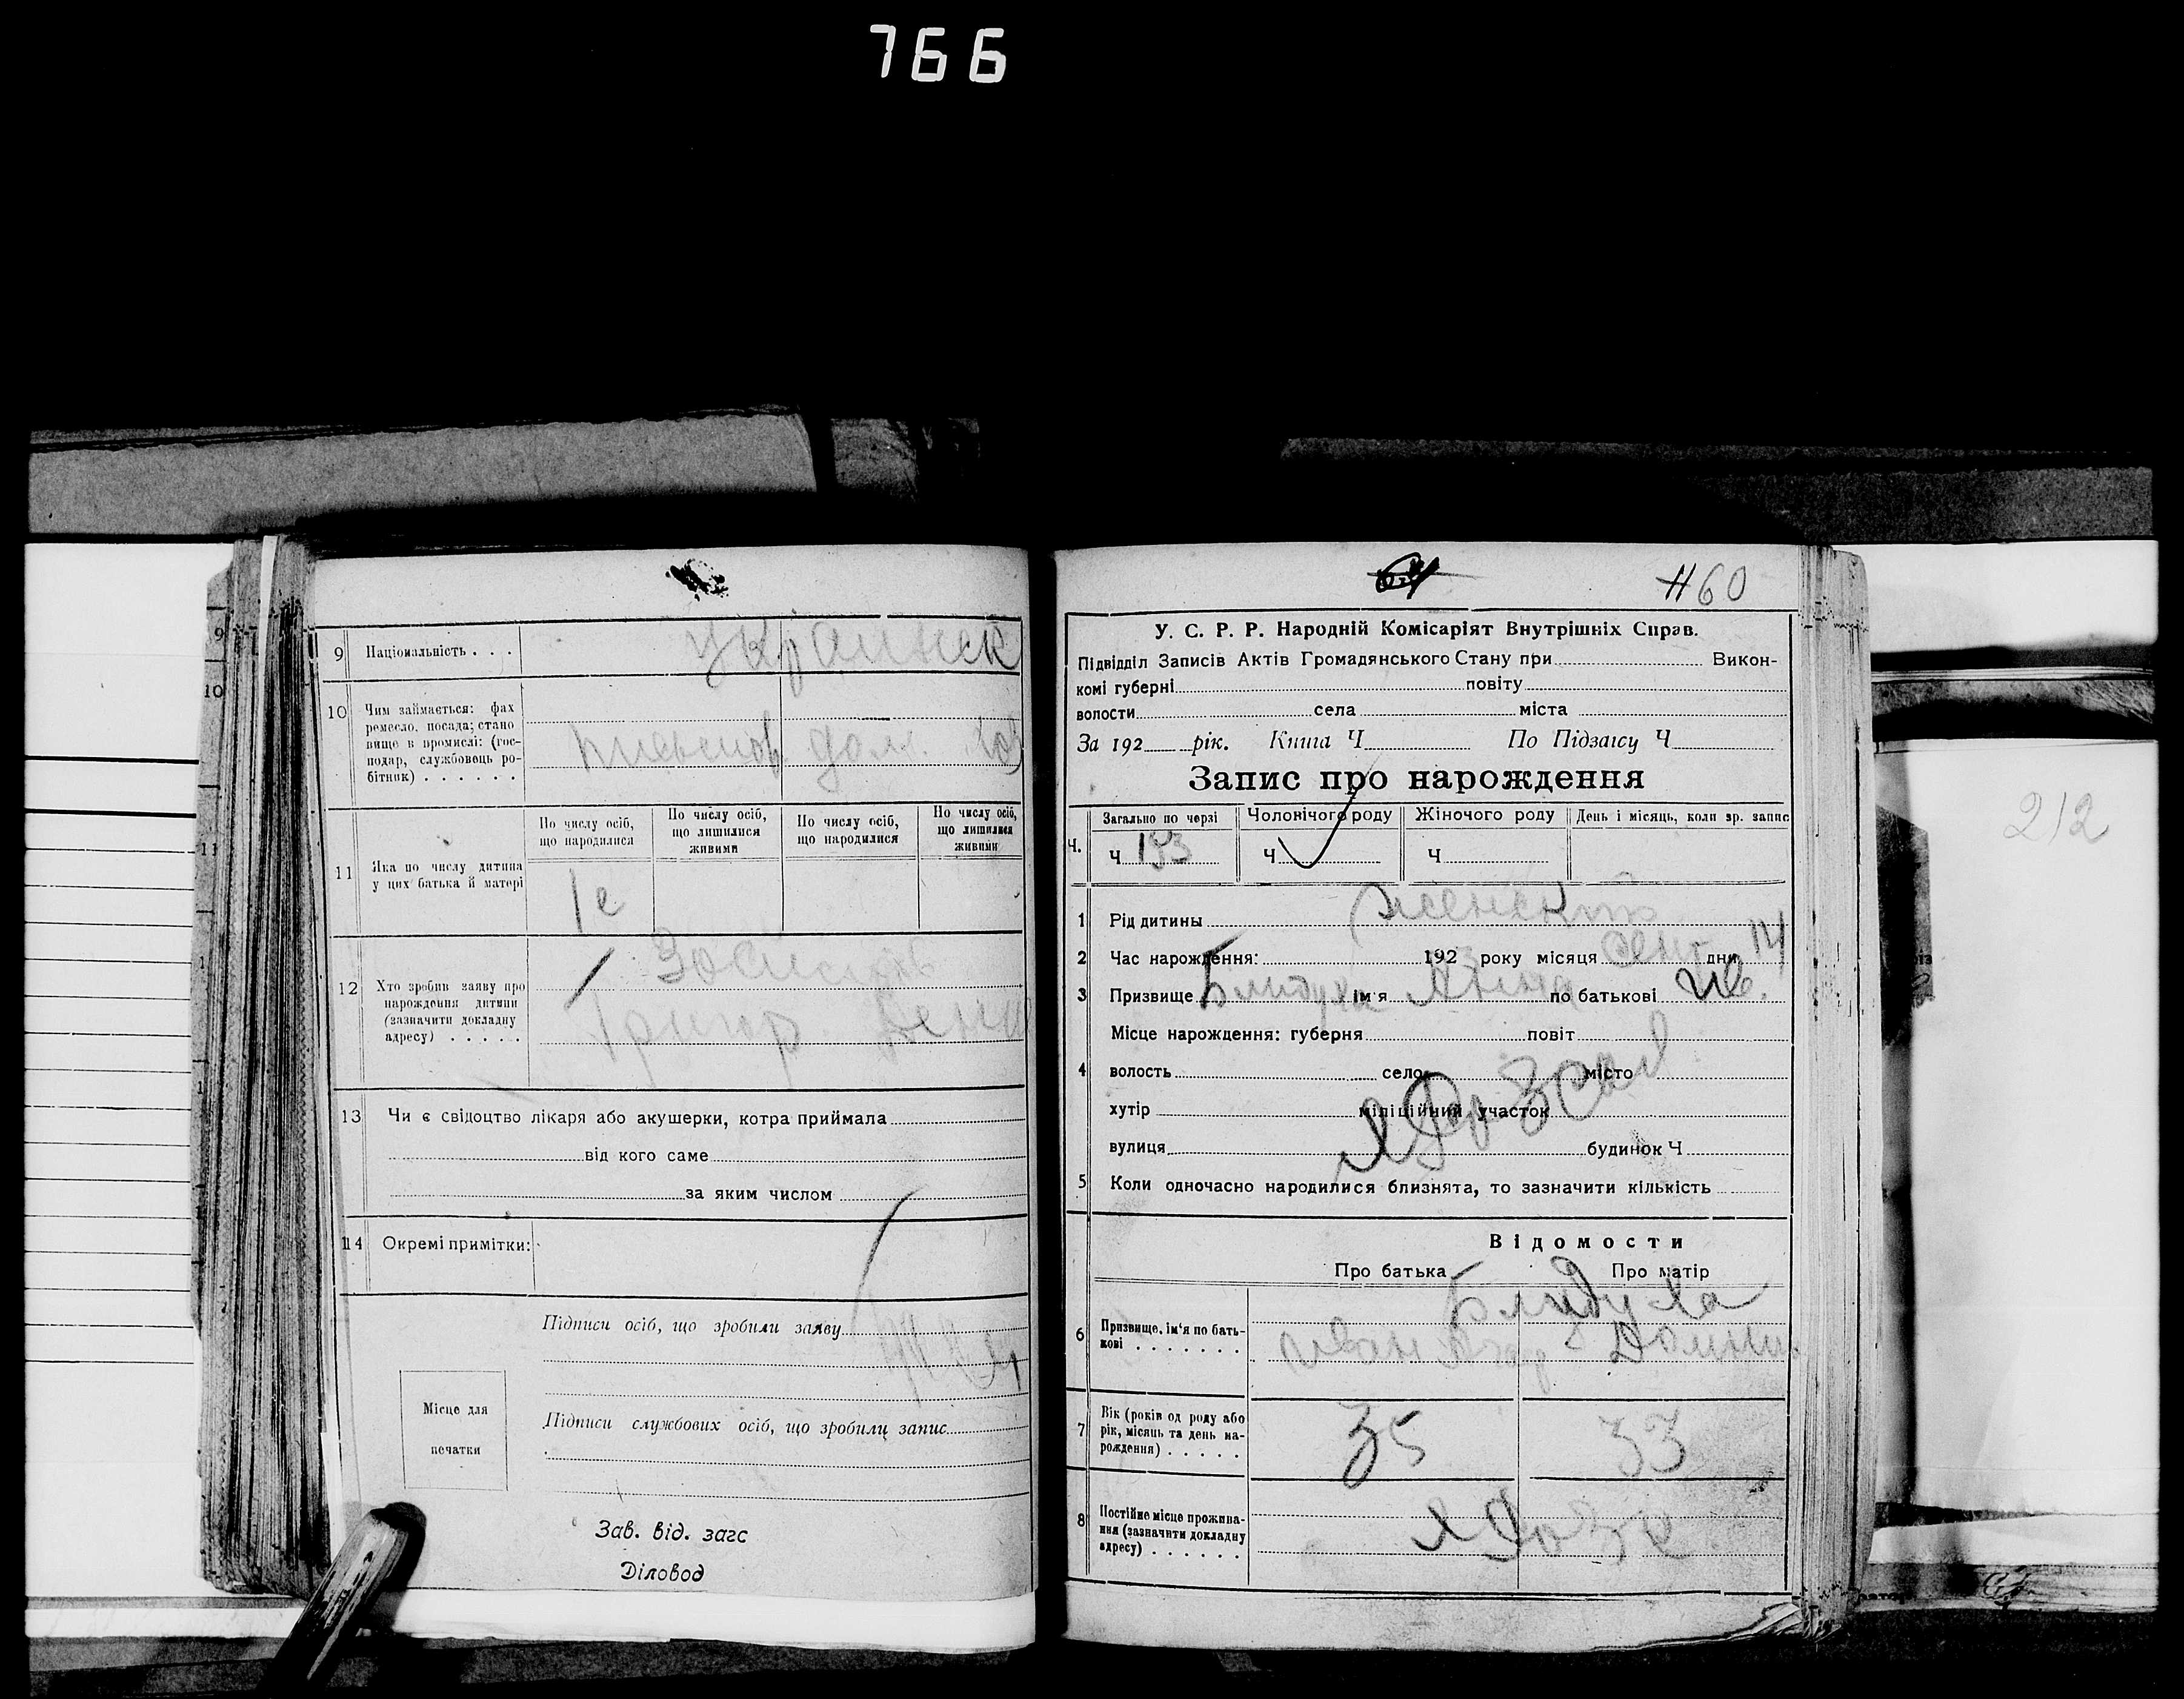 766
9 Національність . . . украинск
10 Чим займається: фах
ремесло. посада; стано
вище в промислі: (гос-
подар, службовець ро-
бітник) . . . . . .
дом. хоз
11 Яка по числу дитина
у цих батька й матері
По числу осіб,
що народилися
По числу осіб,
що лишилися
живими
По числу осіб,
що народилися
По числу осіб,
що лишилися
живими
1е
12 Хто зробив заяву про
нарождення дитини
(зазначити докладну
адресу) . . . . .
Григор
13 Чи є свідоцтво лікаря або акушерки, котра приймала
від кого саме
за яким числом
14 Окремі примітки:
Підписи осіб, що зробили заяву
Місце для
печатки
Підписи службових осіб, що зробили запис
Зав. від. загс
Діловод
64
60
У. С. Р. Р. Народній Комісаріят Внутрішніх Справ.
Підвідділ Записів Актів Громадянського Стану при Викон-
комі губерні повіту
волости села міста
За 192 рік. Книга Ч По Підзагсу Ч
Запис про нарождення
Ч.
Загально по черзі
Чоловічого роду
Жіночого роду
День і місяць, коли зр. запис
Ч 193
Ч
Ч
1 Рід дитины женск
2 Час нарождення: 192 року місяця сент дня 14
3 Призвище Блидула ім'я Анна по батькові Ив.
Місце нарождення: губерня повіт
4 волость село місто
хутір міліційний участок
вулиця будинок Ч
5 Коли одночасно народилися близнята, то зазначити кількість
Відомости
Про батька Про матір
Блидула
6 Призвище, ім'я по бать-
кові . . . . . . .
Иван
Домни
7 Вік (років од роду або
рік, місяць та день на-
рождення) . . . . .
35 33
8 Постійне місце прожива-
ння (зазначити докладну
адресу) . . . . . .
212
9
10
11